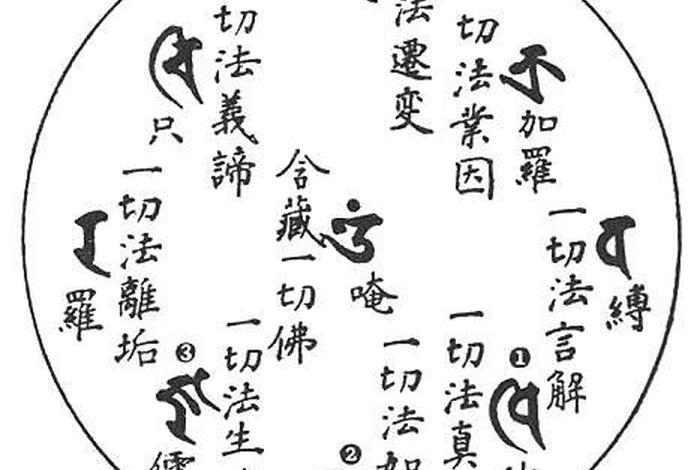 縛
一切法言解
加羅
切法業因
❶
一切法真
法遷変
一切法如
唵
❷
含藏一切佛
切法義諦
一切法生
❸
只
一切法離垢
羅